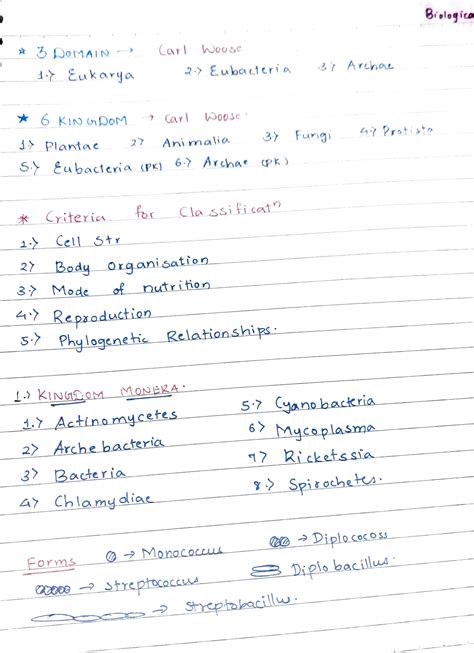 Biologica
* 3 DOMAIN → Carl Woose
1.> Eukarya 2.> Eubacteria 3> Archae
* 6 KINGDOM > Carl Woose.
1> Plantae 2> Animalia 3> Fungi 4.> Protista
5.> Eubacteria (PK) 6.> Archae (PK)
* Criteria for Classificatn
1.> Cell Str
2> Body Organisation
3> Mode of nutrition
4.> Reproduction
5.> Phylogenetic Relationships.
1.) KINGDOM MONERA.
1.> Actinomycetes 5.> Cyanobacteria
2> Archebacteria 6> Mycoplasma
3> Bacteria 7> Ricketssia
4> Chlamydiae 8.> Spirochetes.
Forms → Monococcus → Diplococcus
→ Streptococcus Diplobacillus.
→ Streptobacillus.